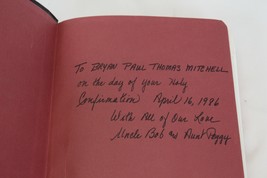 To BRYAN PAUL THOMAS MITCHELL
on the day of your Holy
Confirmation April 16, 1986
With All of Our Love
Uncle Bob and Aunt Peggy